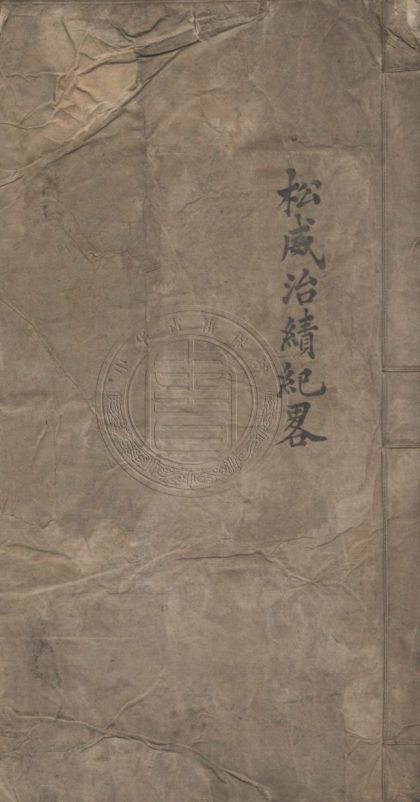 松威治績紀畧